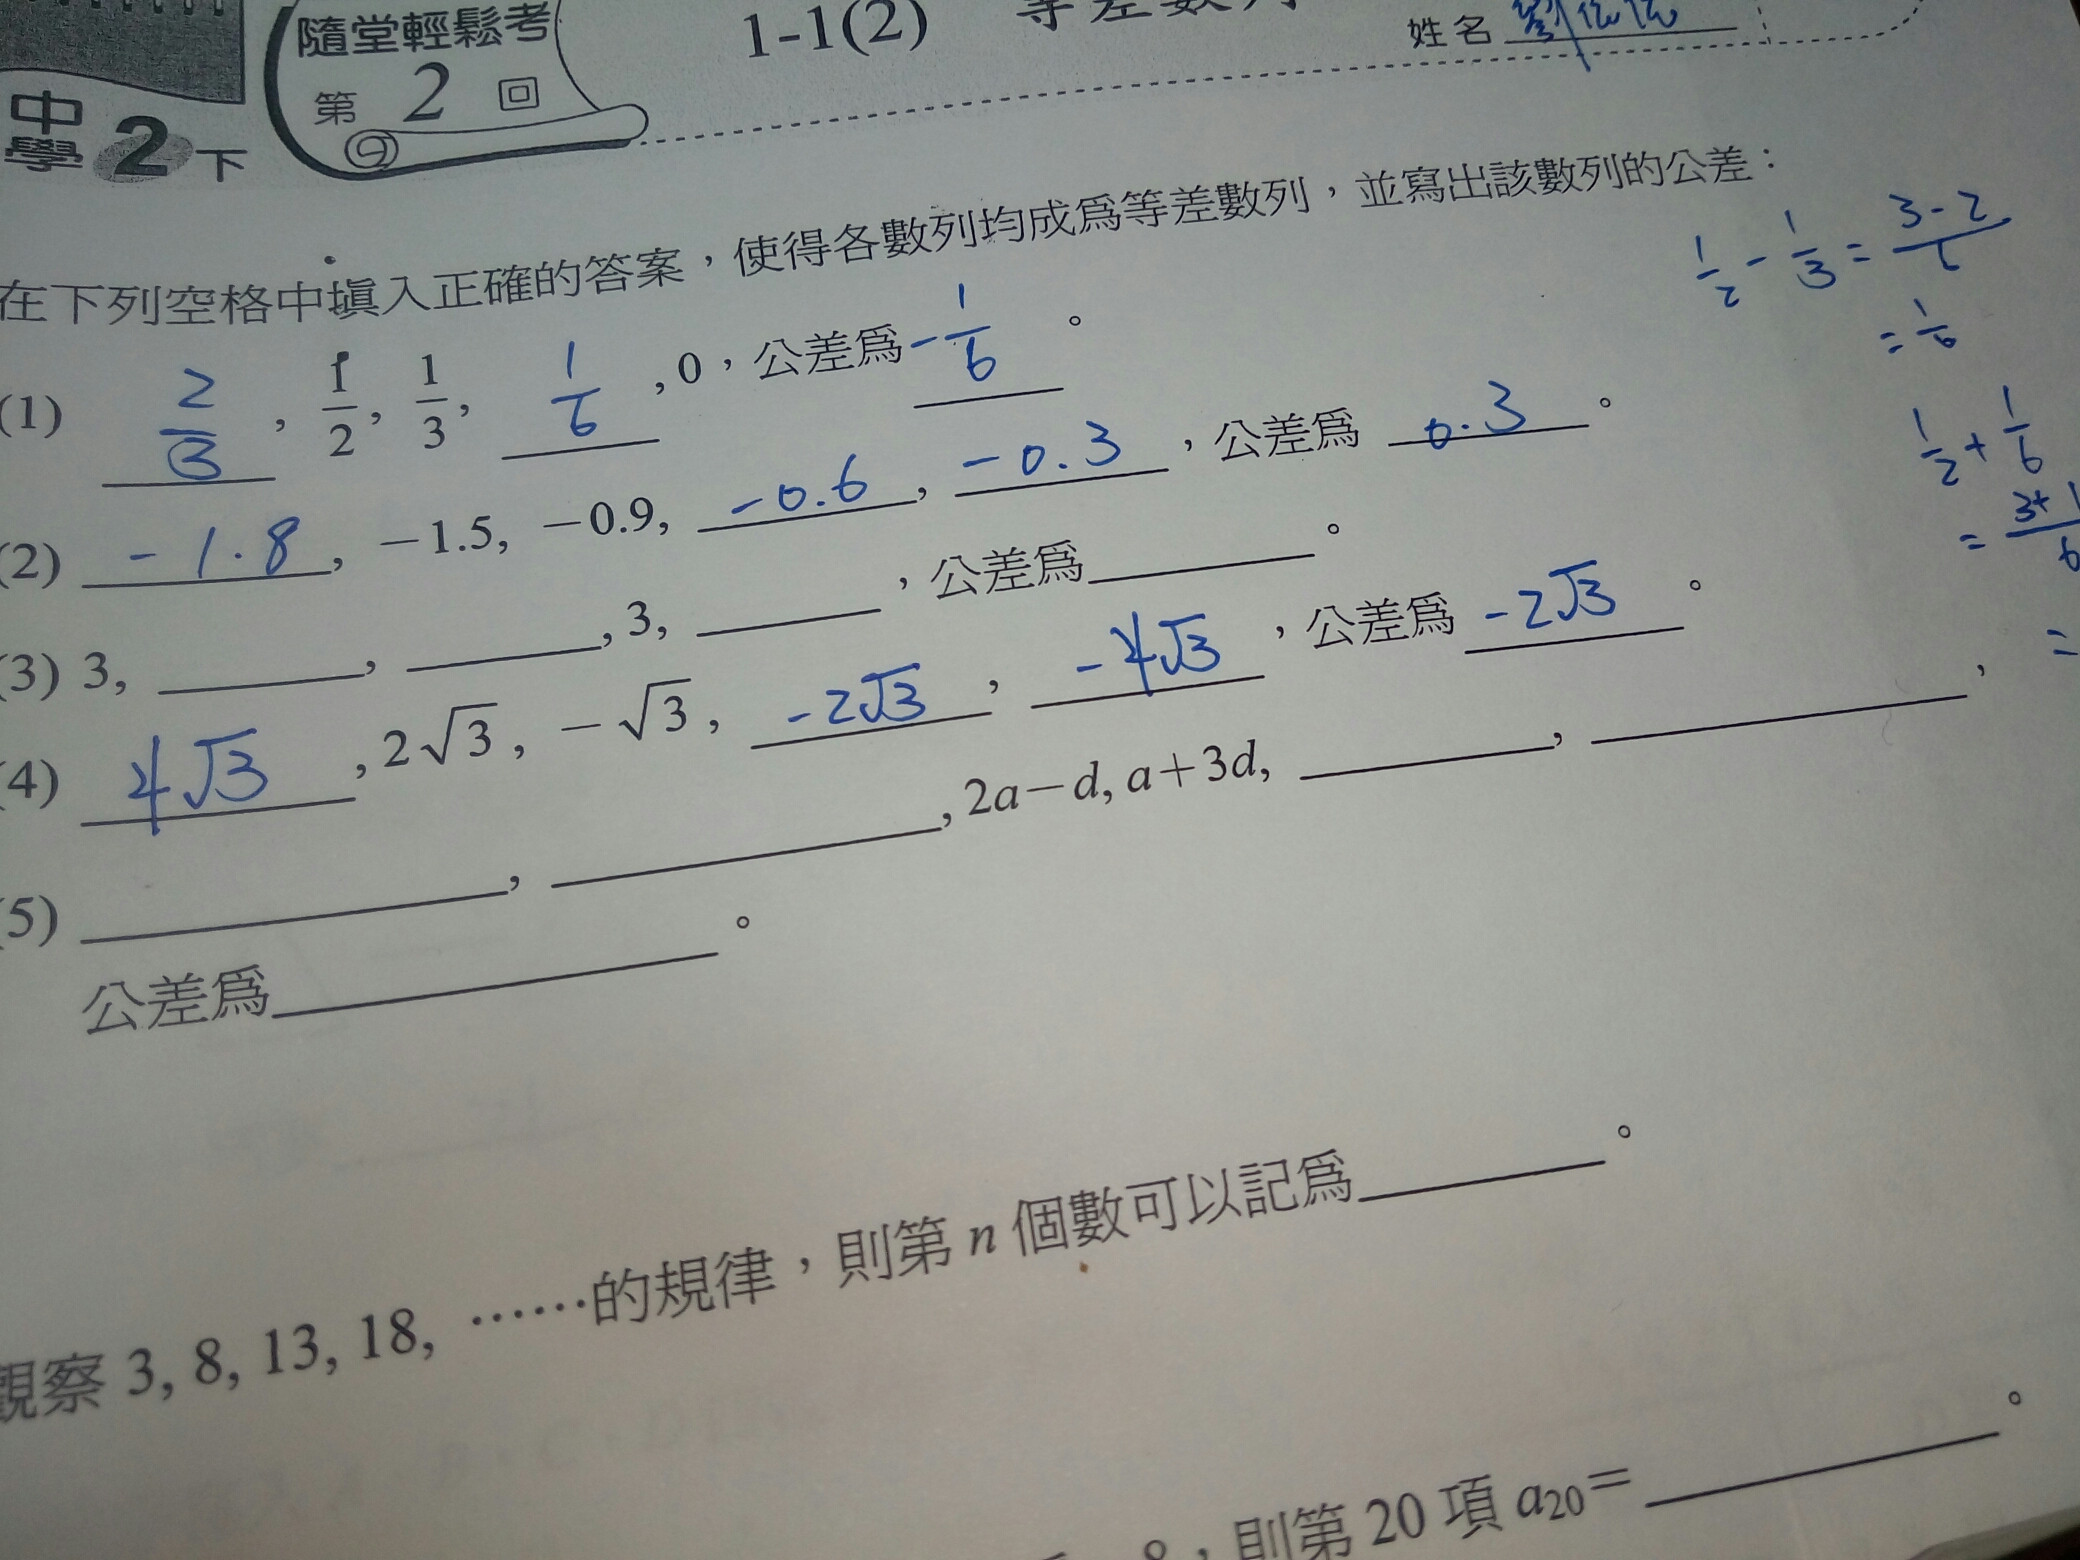 隨堂輕鬆考
第 2 回
1-1(2) 等差數列
姓名
中
學 2 下
在下列空格中填入正確的答案，使得各數列均成爲等差數列，並寫出該數列的公差：
(1) 2/3, 1/2, 1/3, 1/6, 0，公差爲 -1/6。
(2) -1.8, －1.5, －0.9, -0.6, -0.3，公差爲 0.3。
(3) 3, ____, ____, 3, ____，公差爲____。
(4) 4√3, 2√3, －√3, -2√3, -4√3，公差爲 -2√3。
(5) ____, ____, 2a－d, a＋3d, ____, ____,
公差爲____。
觀察 3, 8, 13, 18, ……的規律，則第 n 個數可以記爲____。
8，則第 20 項 a20＝____。
1/2 - 1/3 = 3-2/6
= 1/6
1/2 + 1/6
= 3+1/6
=